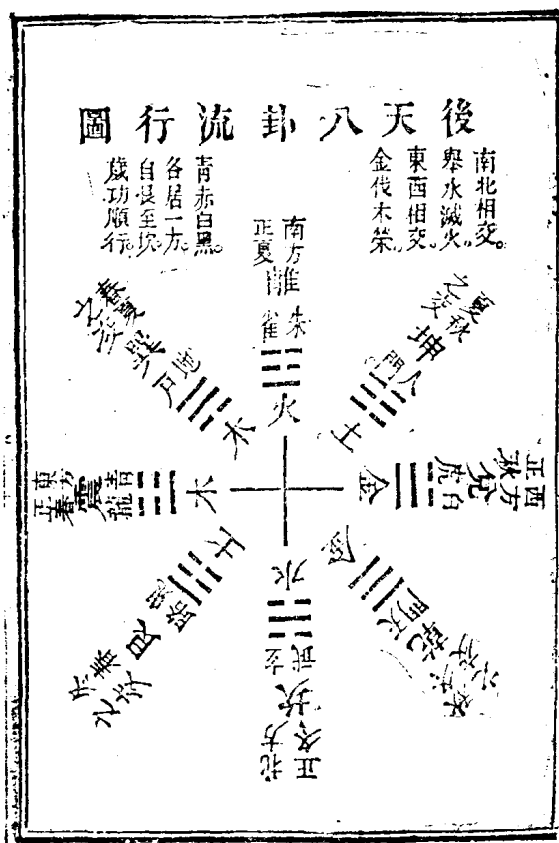 後天八卦流行圖
南北相交。
舉水滅火。
東西相交。
金伐木榮。
青赤白黑。
各居一方。
自艮至坎。
歲功順行。
南方
正夏
離
朱雀
火
夏秋
之交
坤
人門
土
西方
正秋
兌
白虎
金
乾
天門
金
北方
正冬
坎
玄武
水
之交
艮
鬼路
土
東方
正春
震
青龍
木
春夏
之交
巽
地戶
木